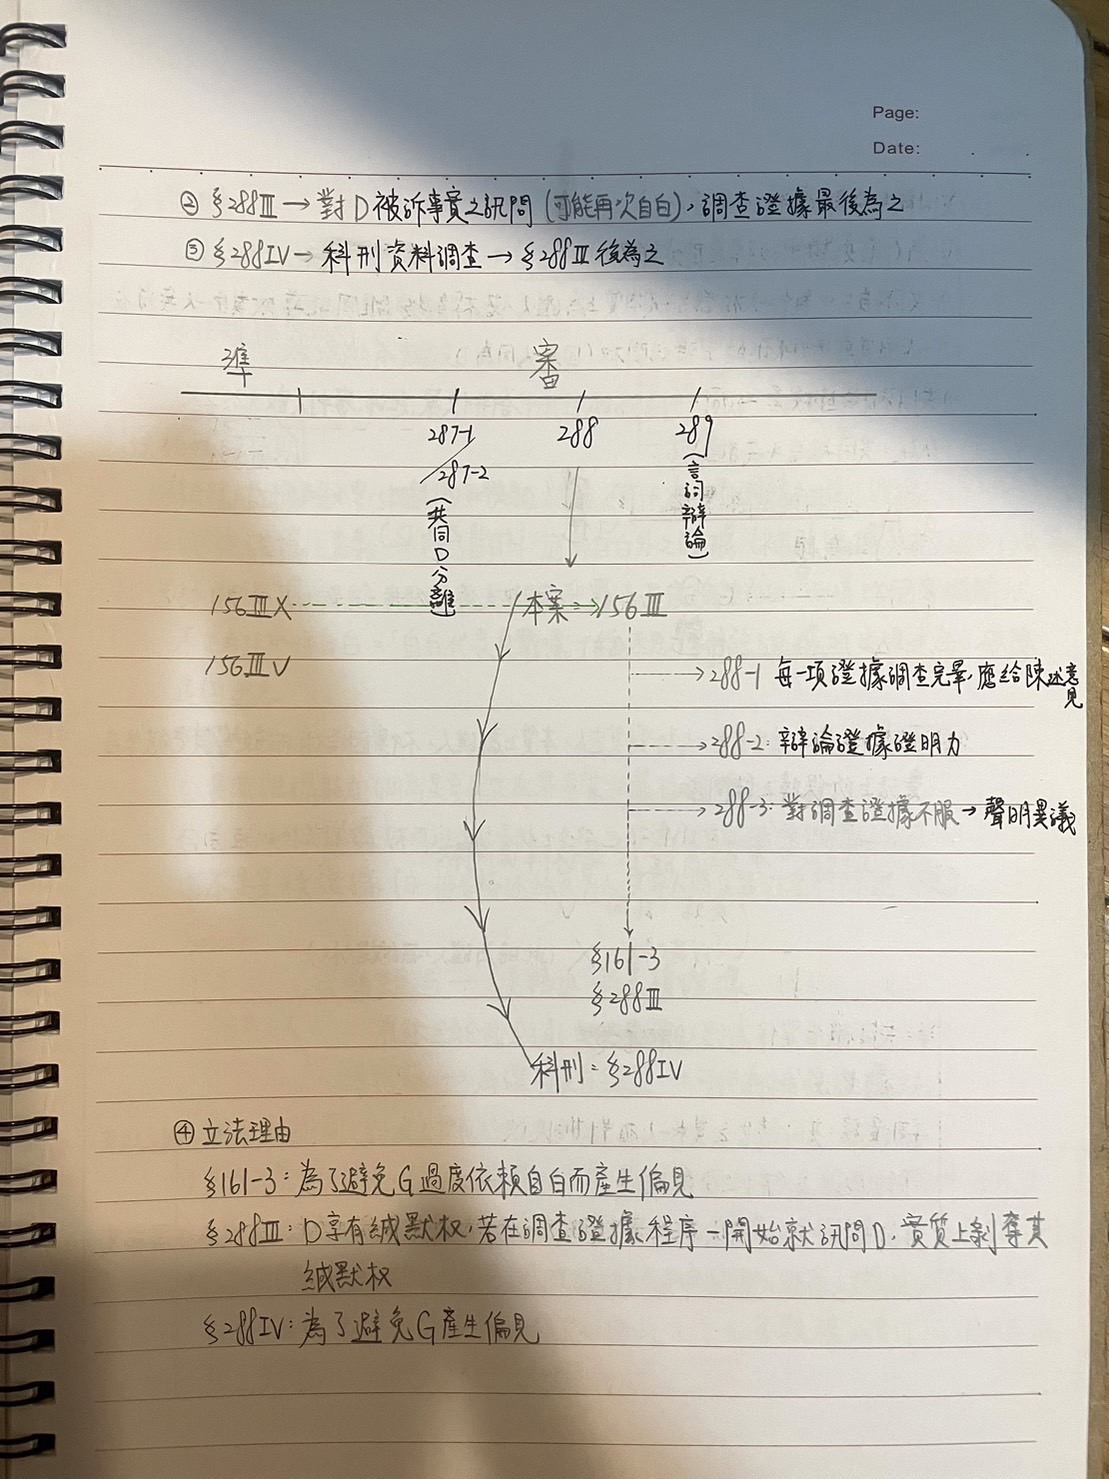 Page:
Date:
② §288Ⅲ → 對D被訴事實之訊問(可能再次自白),調查證據最後為之
③ §288Ⅳ → 科刑資料調查 → §288Ⅲ後為之
準 審
287-1/287-2 (共同D分離)
288
289 (言詞辯論)
156Ⅲ X 本案 → 156Ⅲ
156Ⅲ V
288-1 每一項證據調查完畢,應給陳述意見
288-2: 辯論證據證明力
288-3: 對調查證據不服 → 聲明異議
§161-3
§288Ⅲ
科刑: §288Ⅳ
④ 立法理由
§161-3: 為了避免G過度依賴自白而產生偏見
§288Ⅲ: D享有緘默权,若在調查證據程序一開始就訊問D,實質上剝奪其
緘默权
§288Ⅳ: 為了避免G產生偏見